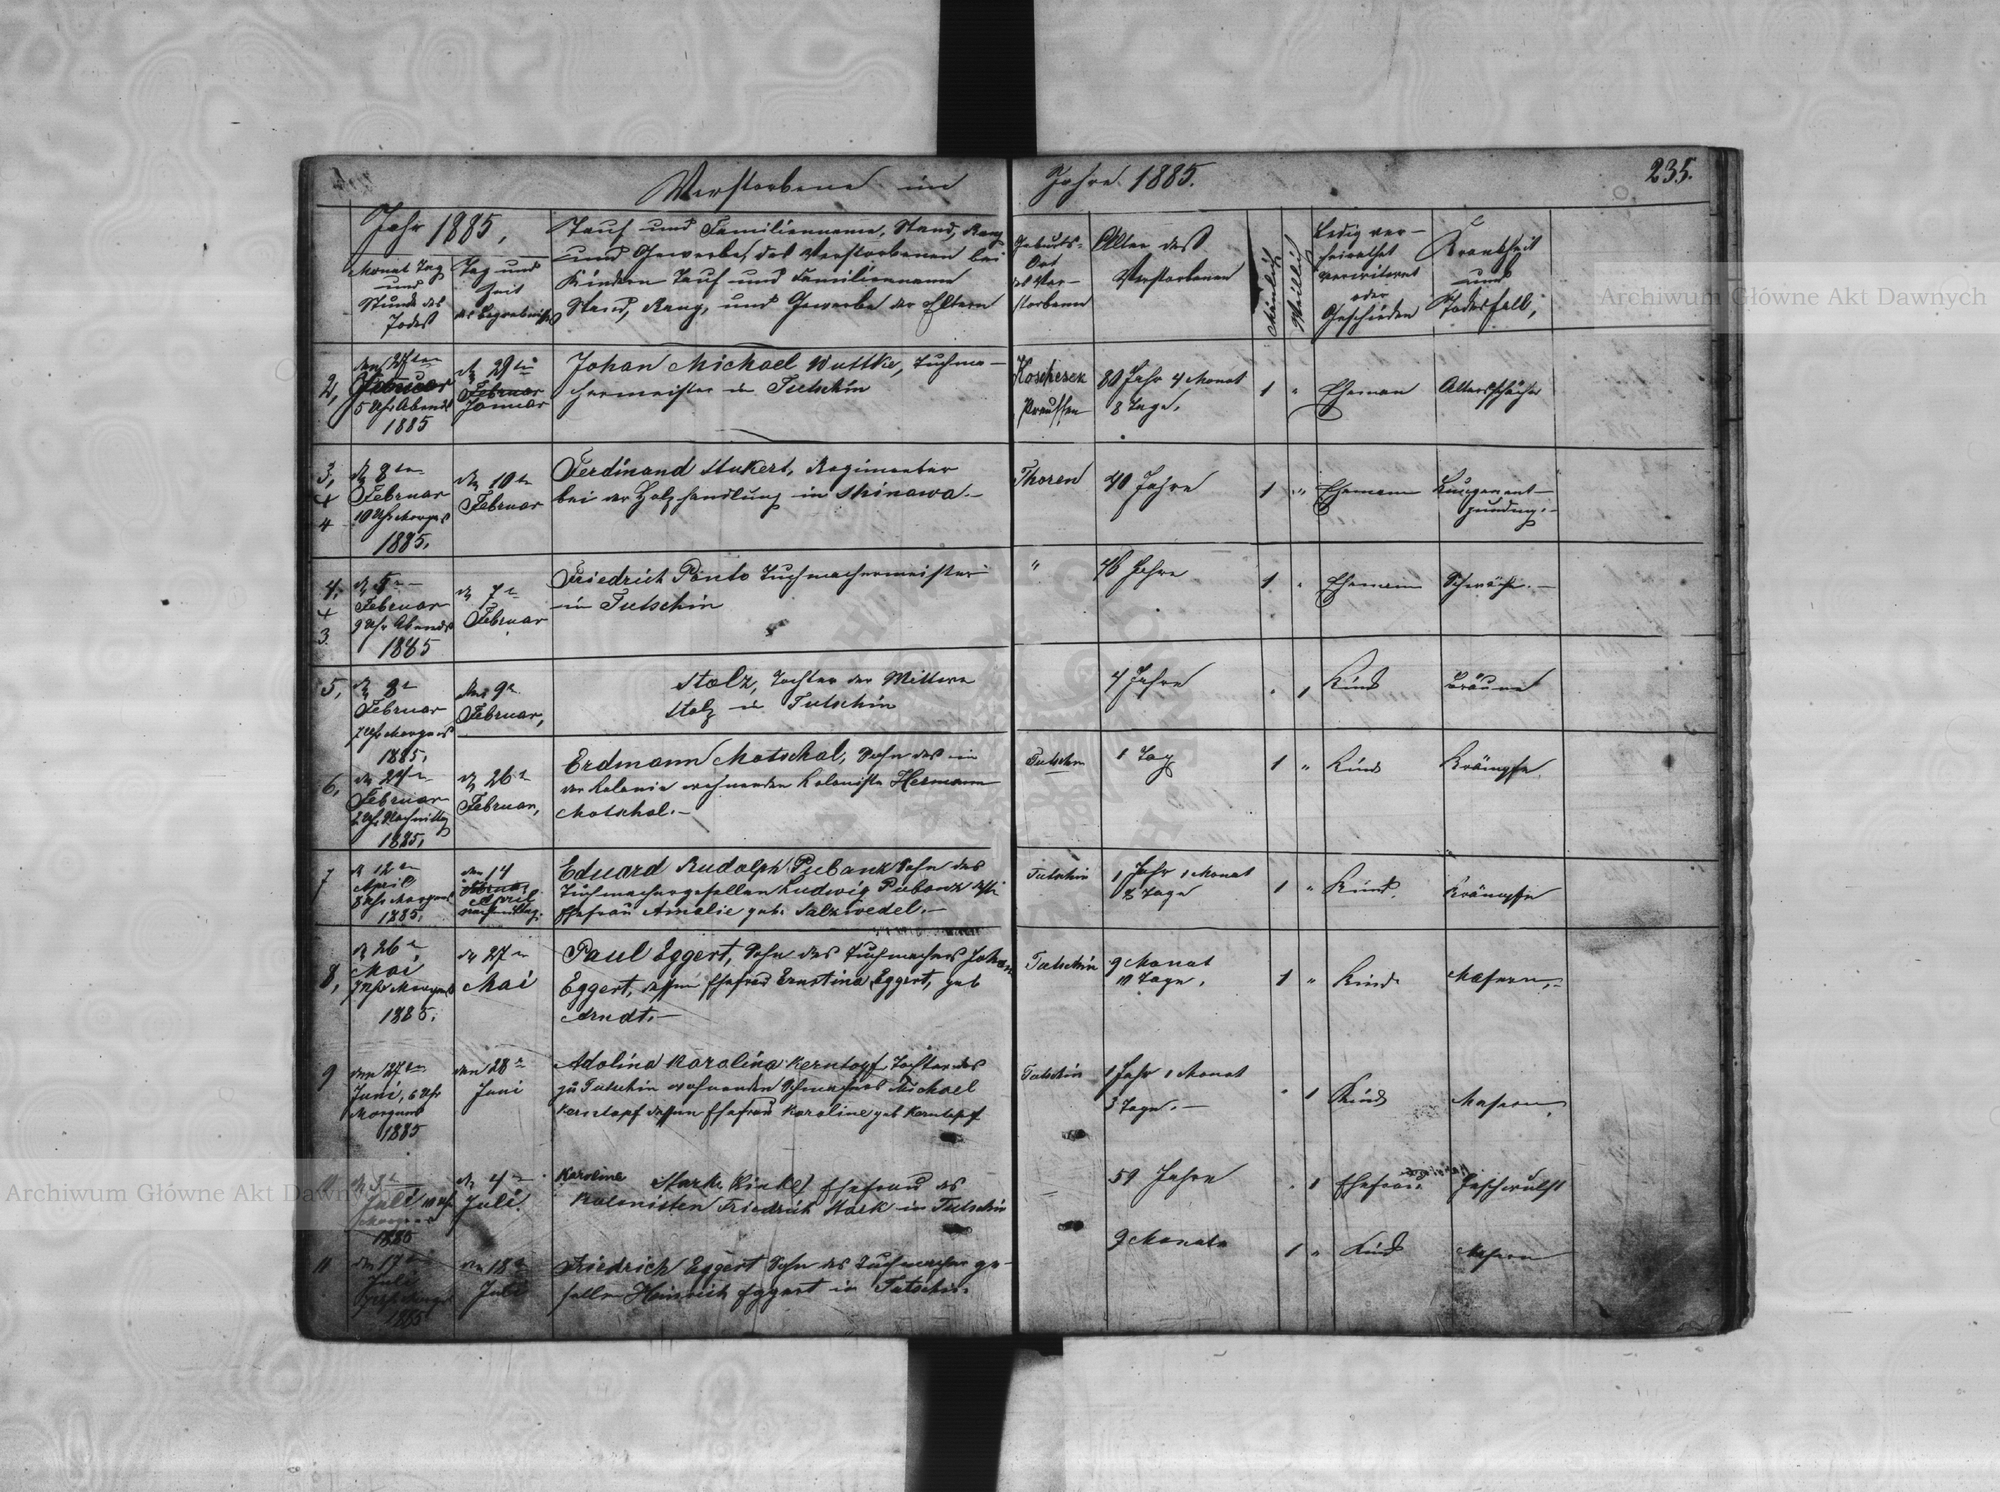 Verstorbene im Jahre 1885.
235.
Jahr 1885,
Monat Tag
und
Stunde des
Todes
Tag und
Zeit
des Begräbnisses
Tauf und Familienname, Stand, Rang
und Gewerbe des Verstorbenen bei
Kindern Tauf und Familienname
Stand, Rang, und Gewerbe der Eltern
Geburts-
Ort
des Ver-
storbenen
Alter des
Verstorbenen
Männlich
Weiblich
Ledig ver-
heirathet
verwitwet
oder
Geschieden
Krankheit
und
Todesfall,
2,
den 27ten
Februar
5 Uhr Abends
1885
d. 29ten
Februar
Januar
Johan Michael Wuttke, Tuchma-
chermeister in Tutschin
Koschesek
Preussen
80 Jahr 4 Monat
8 Tage.
1
"
Eheman
Altersschäche
3,
+
4
d. 8ten
Februar
10 Uhr Morgens
1885,
den 10ten
Februar
Ferdinand Stukert, Regimenter
bei der Holzhandlung in Shinawa.-
Thoren
40 Jahre
1
"
Ehemann
Lungenent-
zündung.-
4,
+
3
d. 5ten
Februar
9 Uhr Abends
1885
d. 7ten
Februar
Friedrich Ponto Tuchmachermeister
in Tutschin
"
48 Jahre
1
"
Ehemann
Schwäche.-
5,
d. 8ten
Februar
7 Uhr Morgens
1885,
den 9ten
Februar,
Stolz, Tochter der Wittwe
Stolz in Tutschin
4 Jahre
"
1
Kind
Bräune
6,
d. 24ten
Februar
2 Uhr Nachmittag
1885,
d. 26ten
Februar,
Erdmann Motschal, Sohn des in
der Kolonie wohnenden Kolonisten Hermann
Motschal.-
Tutschin
1 Tag
1
"
Kind
Krämpfe
7
d. 12ten
April
8 Uhr Morgens
1885,
den 14
Februar
April
nachmittag.
Eduard Rudolph Piebank Sohn des
Tuchmachergesellen Ludwig Piebank
Ehefrau Amalie geb. Salzwedel.-
Tutschin
1 Jahr 1 Monat
8 Tage
1
"
Kind.
Krämpfe
8,
d. 26ten
Mai
7 Uhr Morgens
1885.
d. 27ten
Mai
Paul Eggert, Sohn des Tuchmachers Johan
Eggert, dessen Ehefrau Ernstina Eggert, geb
Arndt.-
Tutschin
9 Monat
10 Tage.
1
"
Kind
Masern.-
9
den 27ten
Juni, 6 Uhr
Morgens
1885
den 28ten
Juni
Adolina Karolina Kerntopf Tochter des
zu Tutschin wohnenden Schumachers Michael
Kerntopf dessen Ehefrau Karoline geb Kerntopf
Tutschin
1 Jahr 1 Monat
3 Tage.-
"
1
Kind
Masern.
d. 3ten
Juli 10 Uhr
Morgens
1885
d. 4ten
Juli.
Karoline Stark Ehefrau des
Kolonisten Friedrich Stark in Tutschin
59 Jahre
"
1
Ehefrau
Geschwulst
11
den 17ten
Juli
1885
den 18ten
Juli
Friedrich Eggert Sohn des Tuchmacherge-
sellen Heinrich Eggert in Tutschin.
9 Monate
1
"
Kind
Masern
Archiwum Główne Akt Dawnych
Archiwum Główne Akt Dawnych